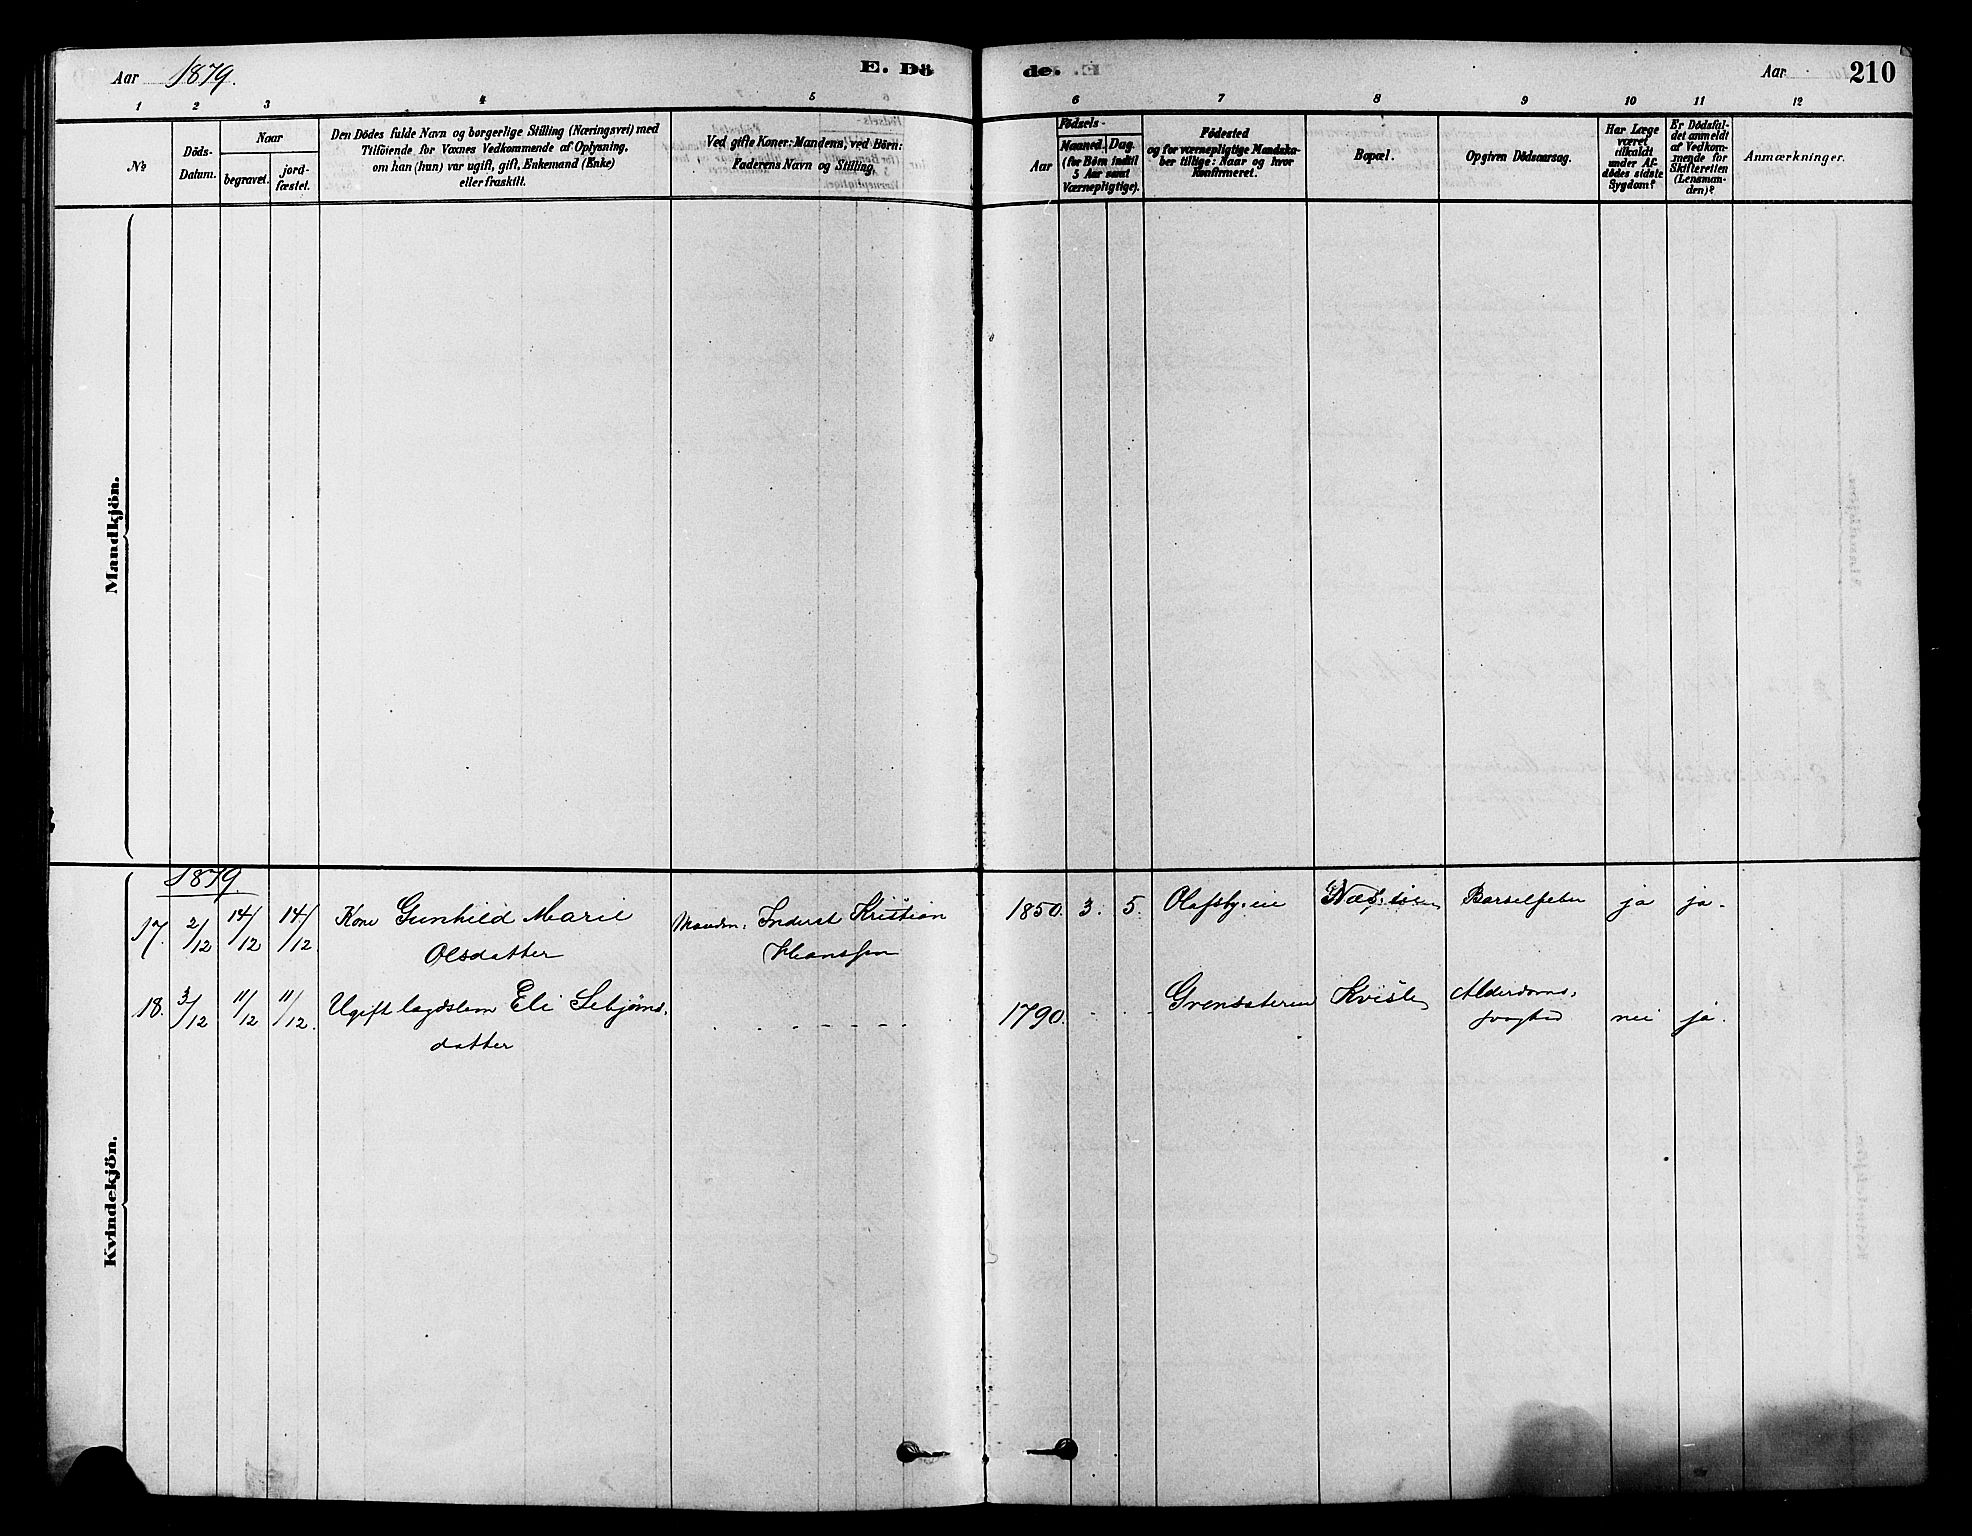 Aar 1879.
E. Dö
de.
Aar
210
1 2 3 4 5 6 7 8 9 10 11 12
No
Döds-
Datum.
Naar
begravet.
jord-
fæstet.
Den Dödes fulde Navn og borgerlige Stilling (Næringsvei) med
Tilföiende for Voxnes Vedkommende af Oplysning,
om han (hun) var ugift, gift, Enkemand (Enke)
eller fraskilt.
Ved gifte Koner: Mandens, ved Börn:
Faderens Navn og Stilling.
Födsels-
Aar
Maaned. Dag.
(for Börn indtil
5 Aar samt
Værnepligtige).
Födested
og for værnepligtige Mandska-
ber tillige: Naar og hvor
Konfirmeret.
Bopæl.
Opgiven Dödsaarsag.
Har Læge
været
tilkaldt
under Af-
dödes sidste
Sygdom?
Er Dödsfal-
det anmeldt
af Vedkom-
mende for
Skifteretten
(Lensman-
den)?
Anmærkninger.
Mandkjön.
Kvindekjön.
1879
17. 2/12 14/12 14/12 Kone Gunhild Marie Manden: Kristian 1850. 3. 5. Olafsby eie Barselfeber ja ja.
Olsdatter Hanssen
18. 3/12 11/12 11/12. Ugift lægdslem Eli Sebjörns- 1790. Alderdoms-
datter nei ja.